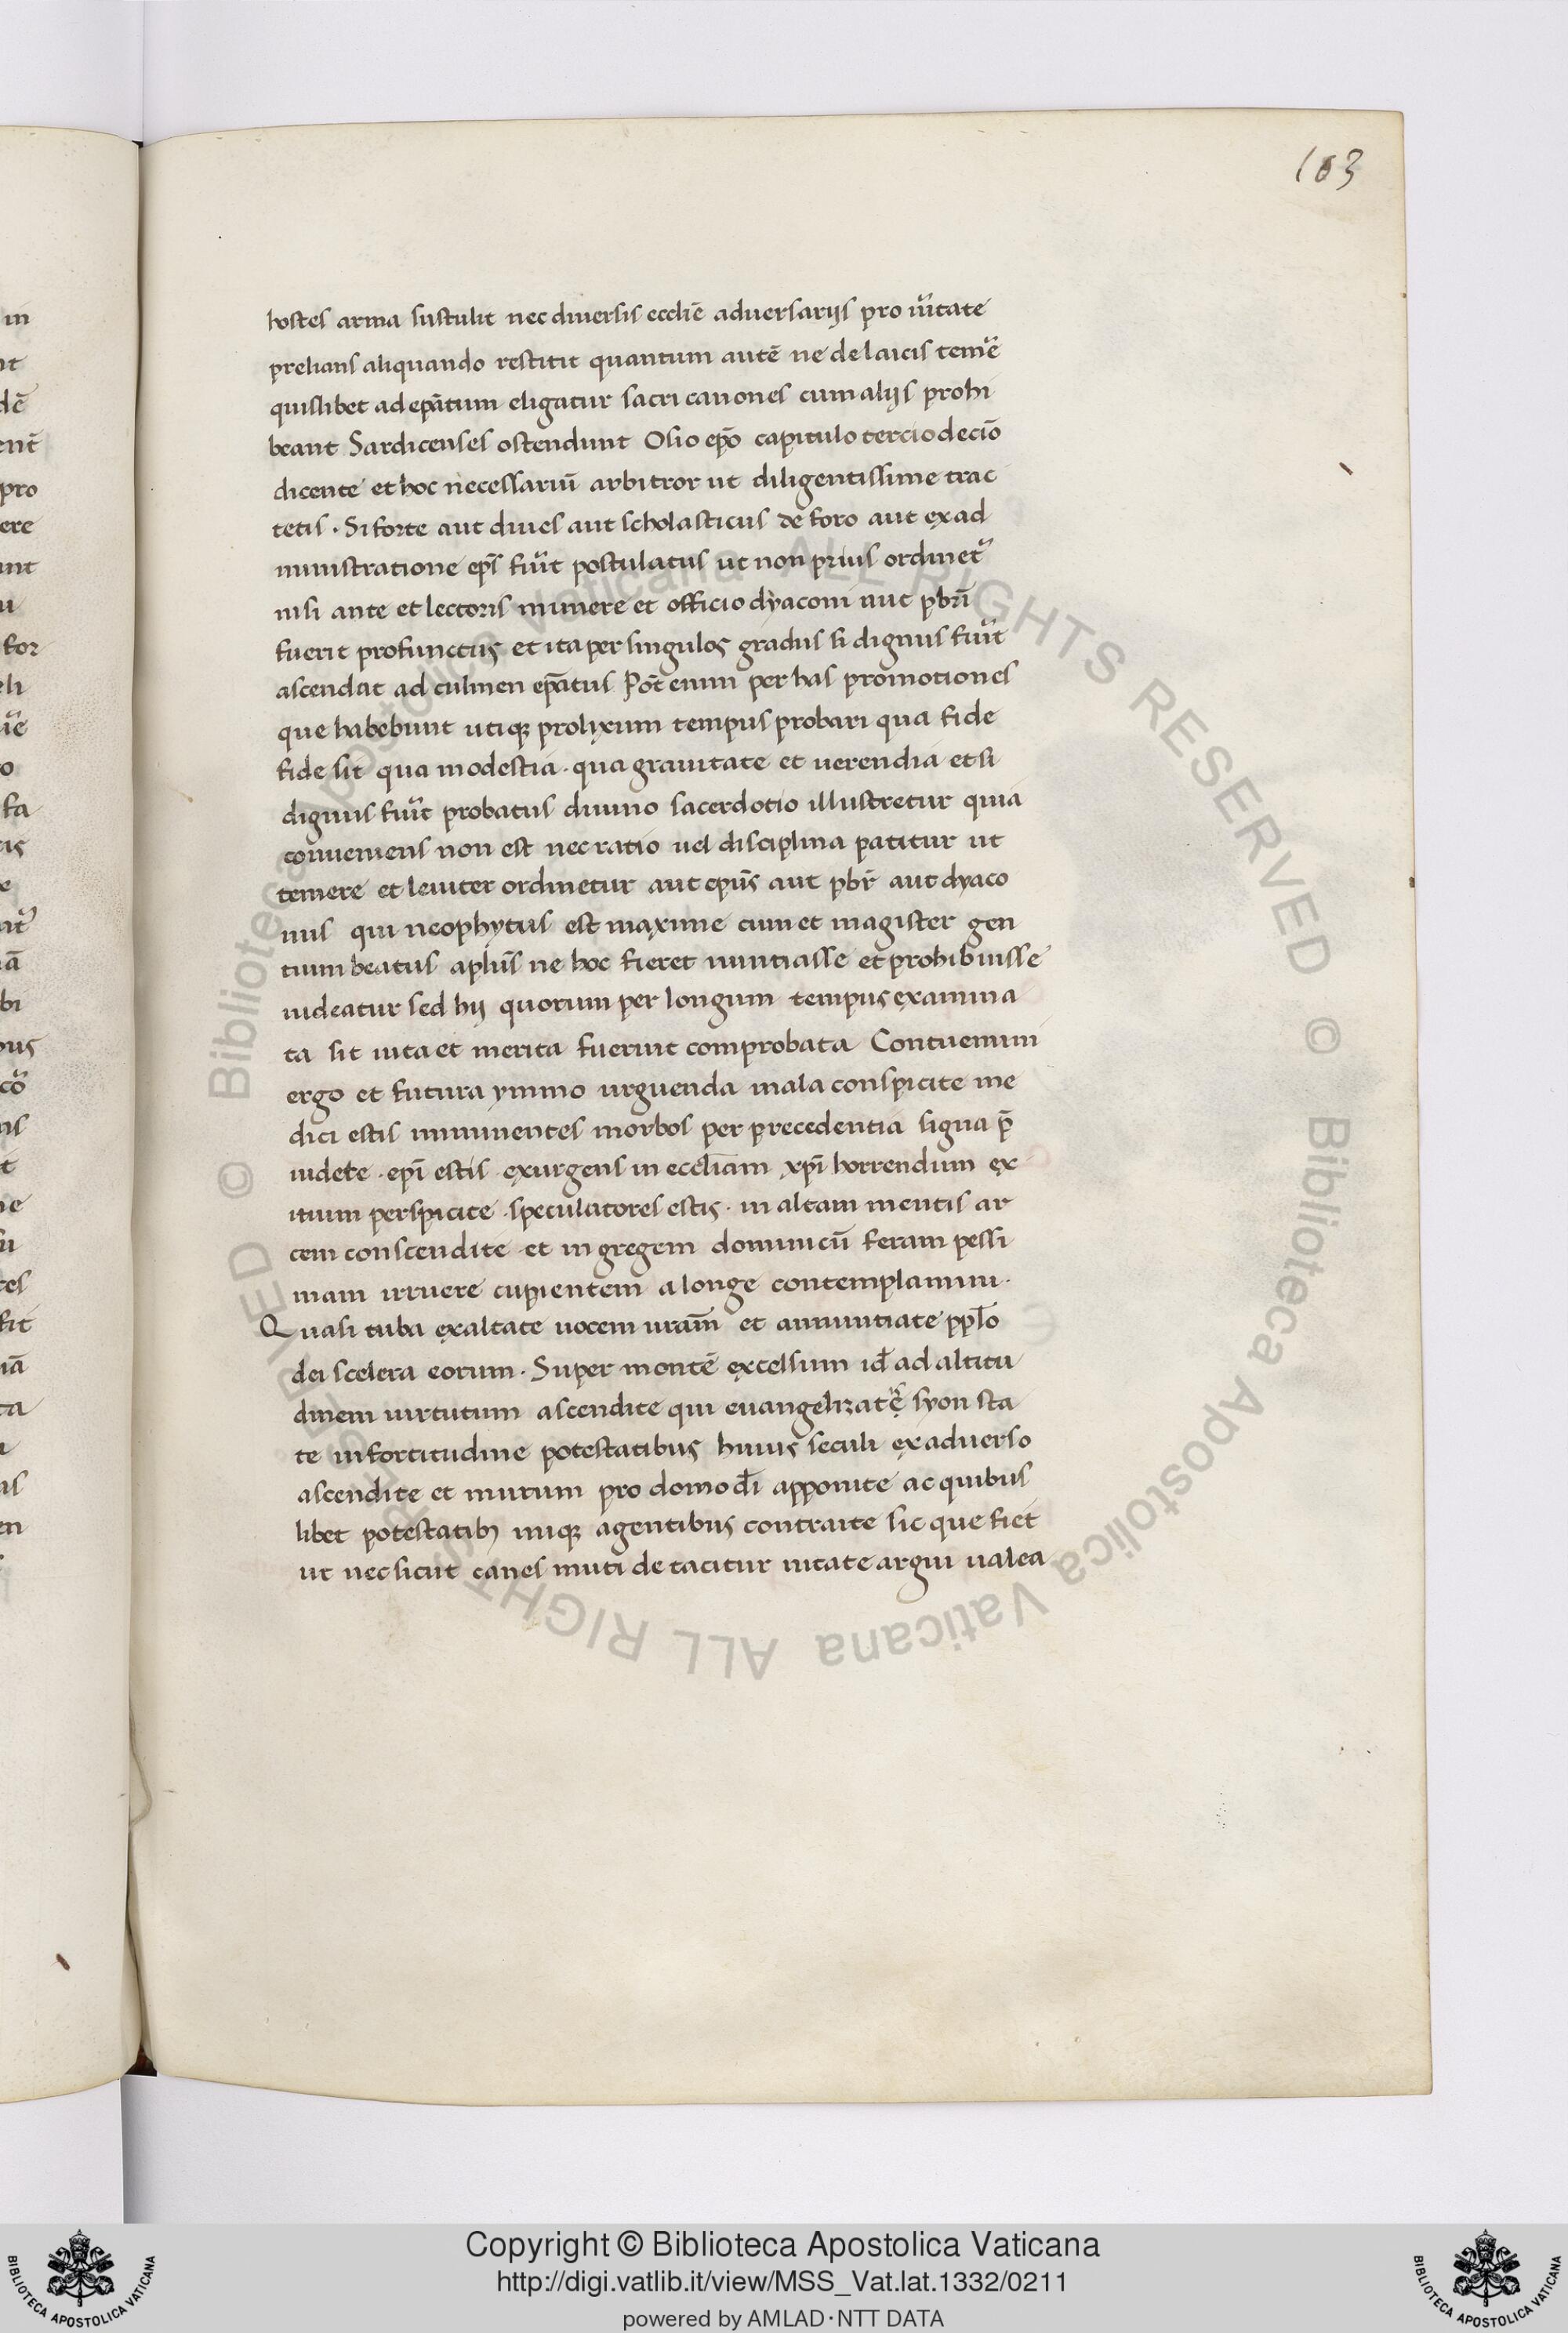 103
hostes arma sustulit nec diversis ecclīe adversarijs pro ūitate
prelians aliquando restitit quantum autē ne de laicis temē
quislibet ad epātum eligatur sacri canones cum alijs prohi
beant Sardicenses ostendunt Osio epō capitulo terciodecīo
dicente et hoc necessariū arbitror ut diligentissime trac
tetis . Si forte aut dives aut scholasticus de foro aut ex ad
ministratione epīs fūit postulatus ut non prius ordinet᷑
nisi ante et lectoris munere et officio dyaconi aut pbrī
fuerit profunctus et ita per singulos gradus si dignus fūit
ascendat ad culmen epātus Pōt enim per has promotiones
que habebunt utiqꝫ prolixum tempus probari qua fide
fide sit qua modestia . qua gravitate et verendia et si
dignus fūit probatus divino sacerdotio illustretur quia
conveniens non est nec ratio vel disciplina patitur ut
temere et leviter ordinetur aut epūs aut pbr̄ aut dyaco
nus qui neophytus est maxime cum et magister gen
tium beatus aplūs ne hoc fieret nuntiasse et prohibuisse
videatur sed hij quorum per longum tempus examina
ta sit vita et merita fuerint comprobata Contuemini
ergo et futura ymmo urguenda mala conspicite me
dici estis imminentes morbos per precedentia signa p̄
videte . epī estis . exurgens in eccliam xpī horrendum ex
itium perspicite . speculatores estis . in altam mentis ar
cem conscendite et in gregem dominicū feram pessi
mam irruere cupientem a longe contemplamini .
Quasi tuba exaltate vocem vram̄ et annuntiate pplo
dei scelera eorum . Super montē excelsum id̄ ad altitu
dinem virtutum ascendite qui evangelizat᷑ę syon sta
te in fortitudine potestatibus huius seculi ex adverso
ascendite et murum pro domo dī apponite ac quibus
libet potestatibꝫ iniqꝫ agentibus contraite sic que fiet
ut nec sicut canes muti de tacitur nitate argui valea
Copyright © Biblioteca Apostolica Vaticana
http://digi.vatlib.it/view/MSS_Vat.lat.1332/0211
powered by AMLAD·NTT DATA